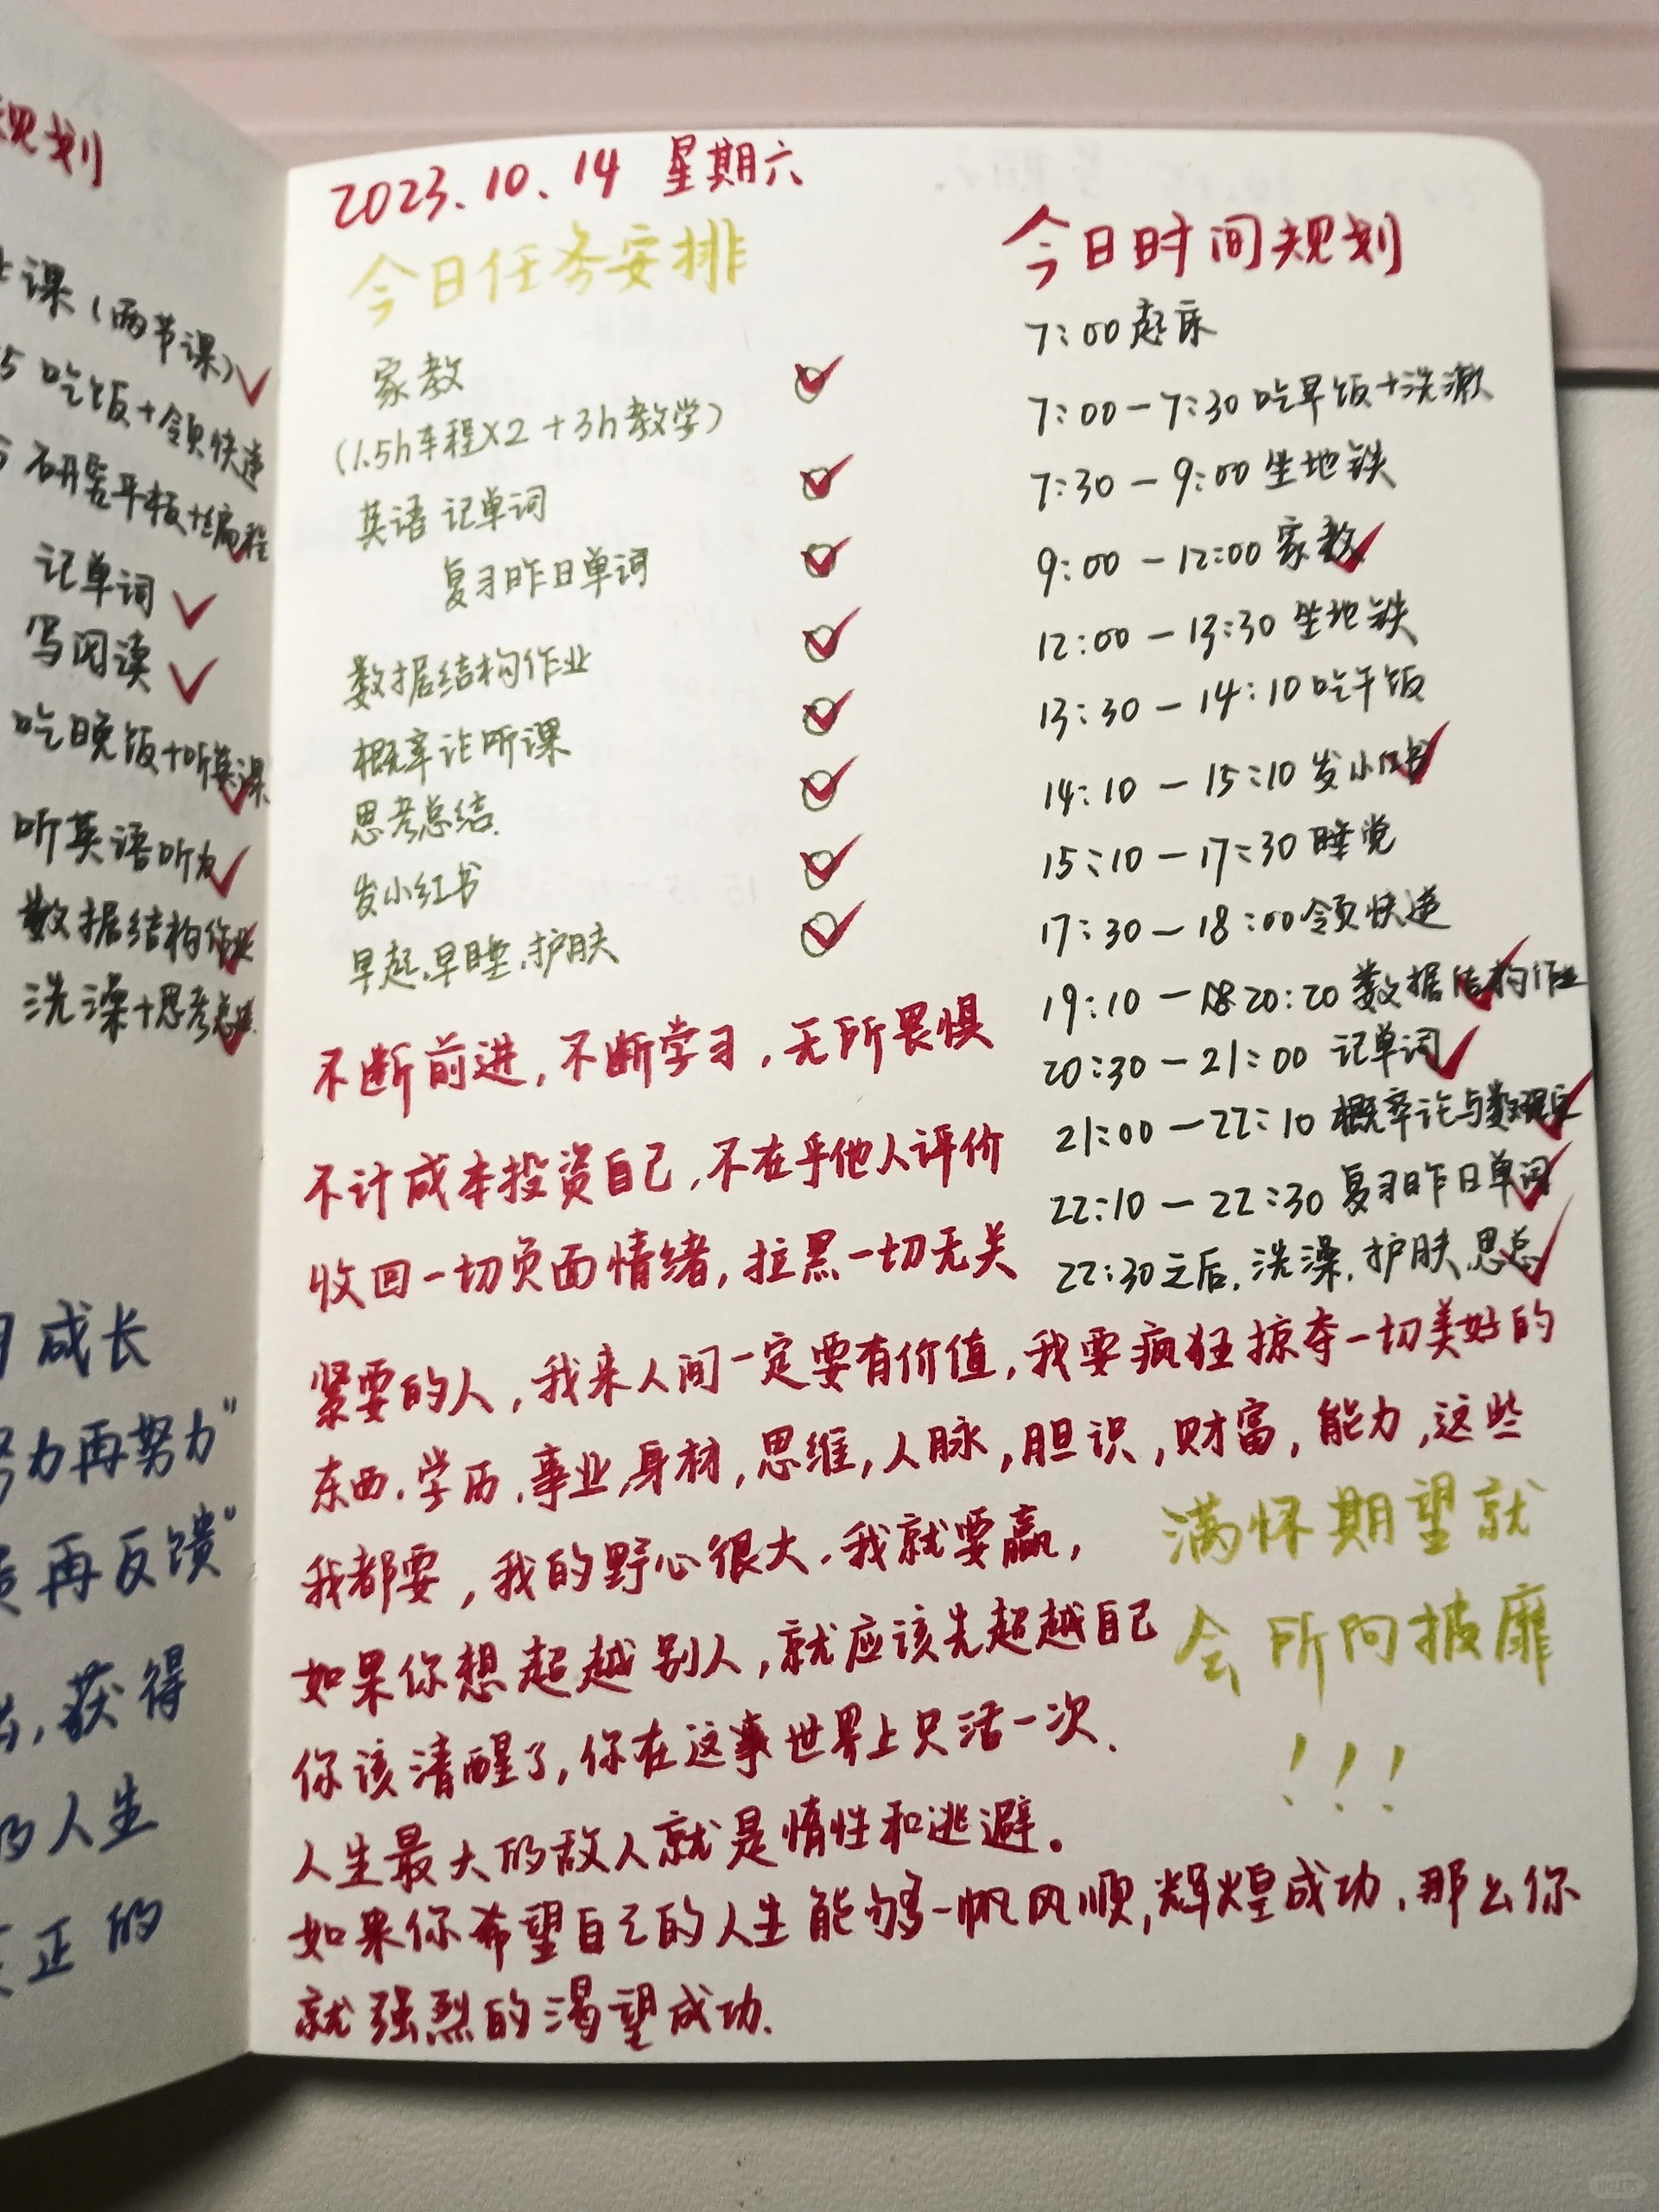 规划
课(两节课)
5 吃饭+领快递
5 研究平板+编程
记单词
写阅读
吃晚饭+听英课
听英语听力
数据结构作业
洗澡+思考总
成长
努力再努力”
再反馈”
获得
的人生
正的
2023.10.14 星期六
今日任务安排
家教
(1.5h车程X2+3h教学)
英语 记单词
复习昨日单词
数据结构作业
概率论听课
思考总结.
发小红书
早起,早睡,护肤
今日时间规划
7:00起床
7:00-7:30吃早饭+洗漱
7:30-9:00坐地铁
9:00-12:00家教
12:00-13:30坐地铁
13:30-14:10吃午饭
14:10-15:10发小红书
15:10-17:30睡觉
17:30-18:00领快递
19:10-20:20数据结构作业
20:30-21:00 记单词
21:00-22:10概率论与数理
22:10-22:30复习昨日单词
22:30之后,洗澡,护肤,思总
不断前进,不断学习,无所畏惧
不计成本投资自己,不在乎他人评价
收回一切负面情绪,拉黑一切无关
紧要的人,我来人间一定要有价值,我要疯狂掠夺一切美好的
东西.学历.事业,身材,思维,人脉,胆识,财富,能力,这些
我都要,我的野心很大.我就要赢,
如果你想超越别人,就应该先超越自己
你该清醒了,你在这世界上只活一次.
人生最大的敌人就是惰性和逃避。
如果你希望自己的人生能够一帆风顺,辉煌成功.那么你
就强烈的渴望成功.
满怀期望就
会所向披靡
!!!